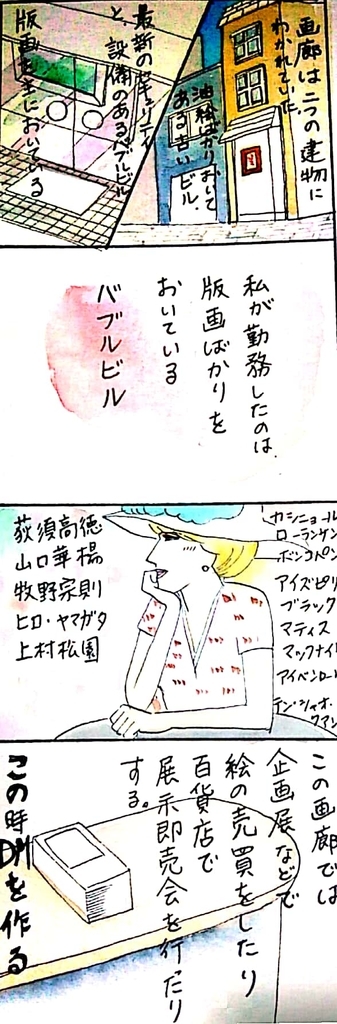 画廊は二つの建物に
わかれていた。
油絵ばかりおいて
ある古い
ビル、
最新のセキュリティ
と、設備のあるバブルビル
版画を主においている
私が勤務したのは、
版画ばかりを
おいている
バブルビル
カシニョール
ローランサン
ボンコパン
アイズピリ
ブラック
マティス
マックナイト
アイベンロール
テン・シャオ・
クアン
荻須高徳
山口華楊
牧野宗則
ヒロ・ヤマガタ
上村松園
この画廊では
企画展などで
絵の売買をしたり
百貨店で
展示即売会を行ったり
する。
この時DMを作る